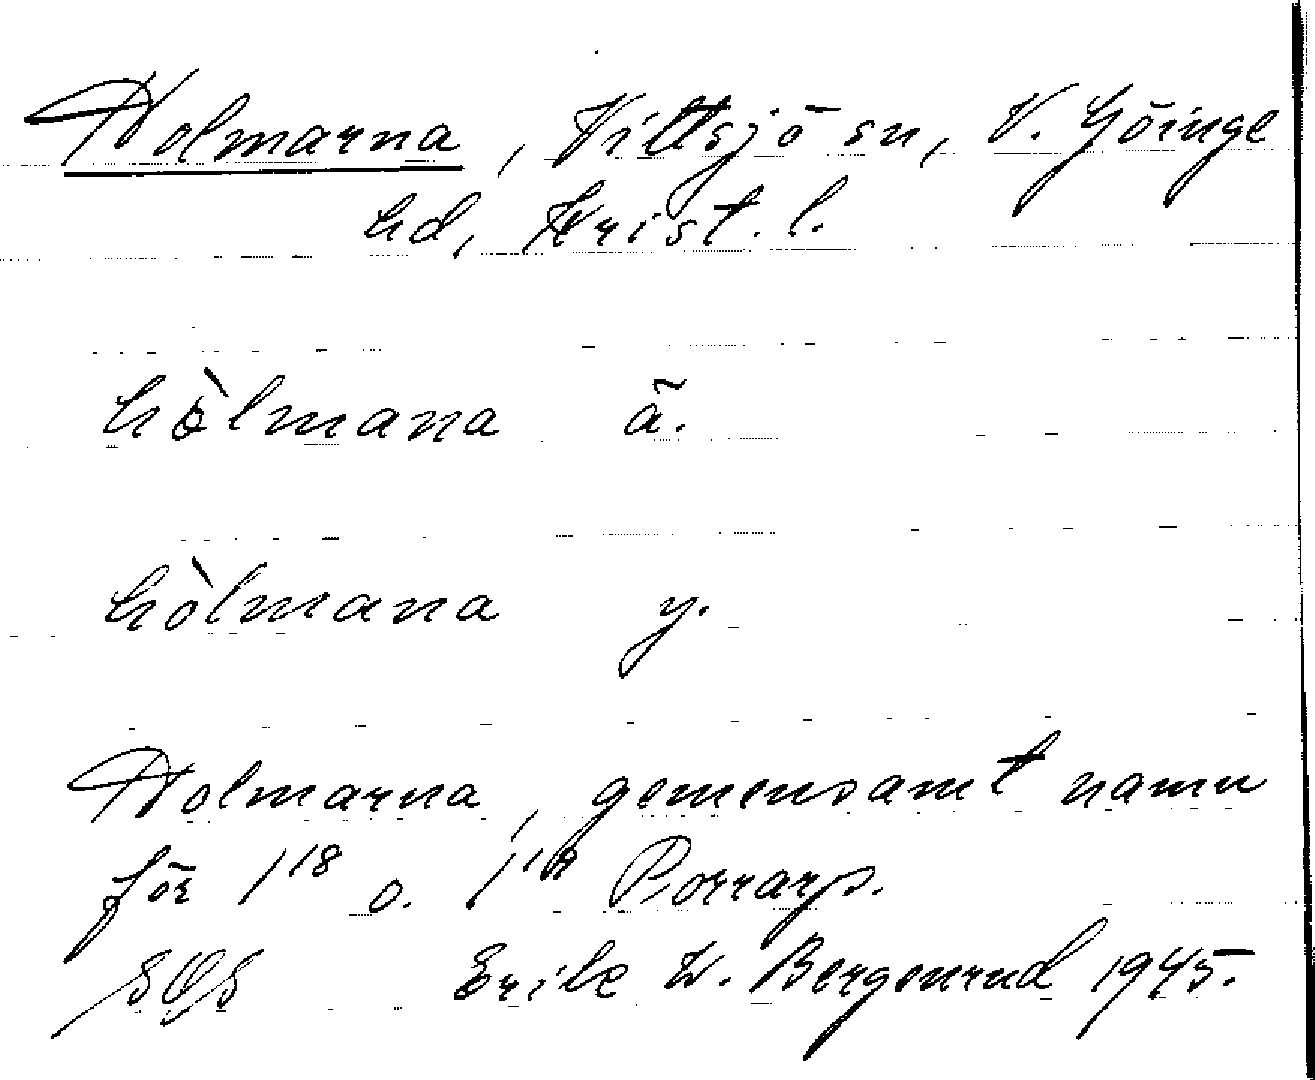 Holmarna, Vittsjö sn, V. Göinge
hd, Krist. l.
hòlmana ä.
hòlmana y.
Holmarna, gemensamt namn
för 1¹⁸ o. 1¹⁹ Porrarp.
SOS Erik W. Bergenrud 1945.